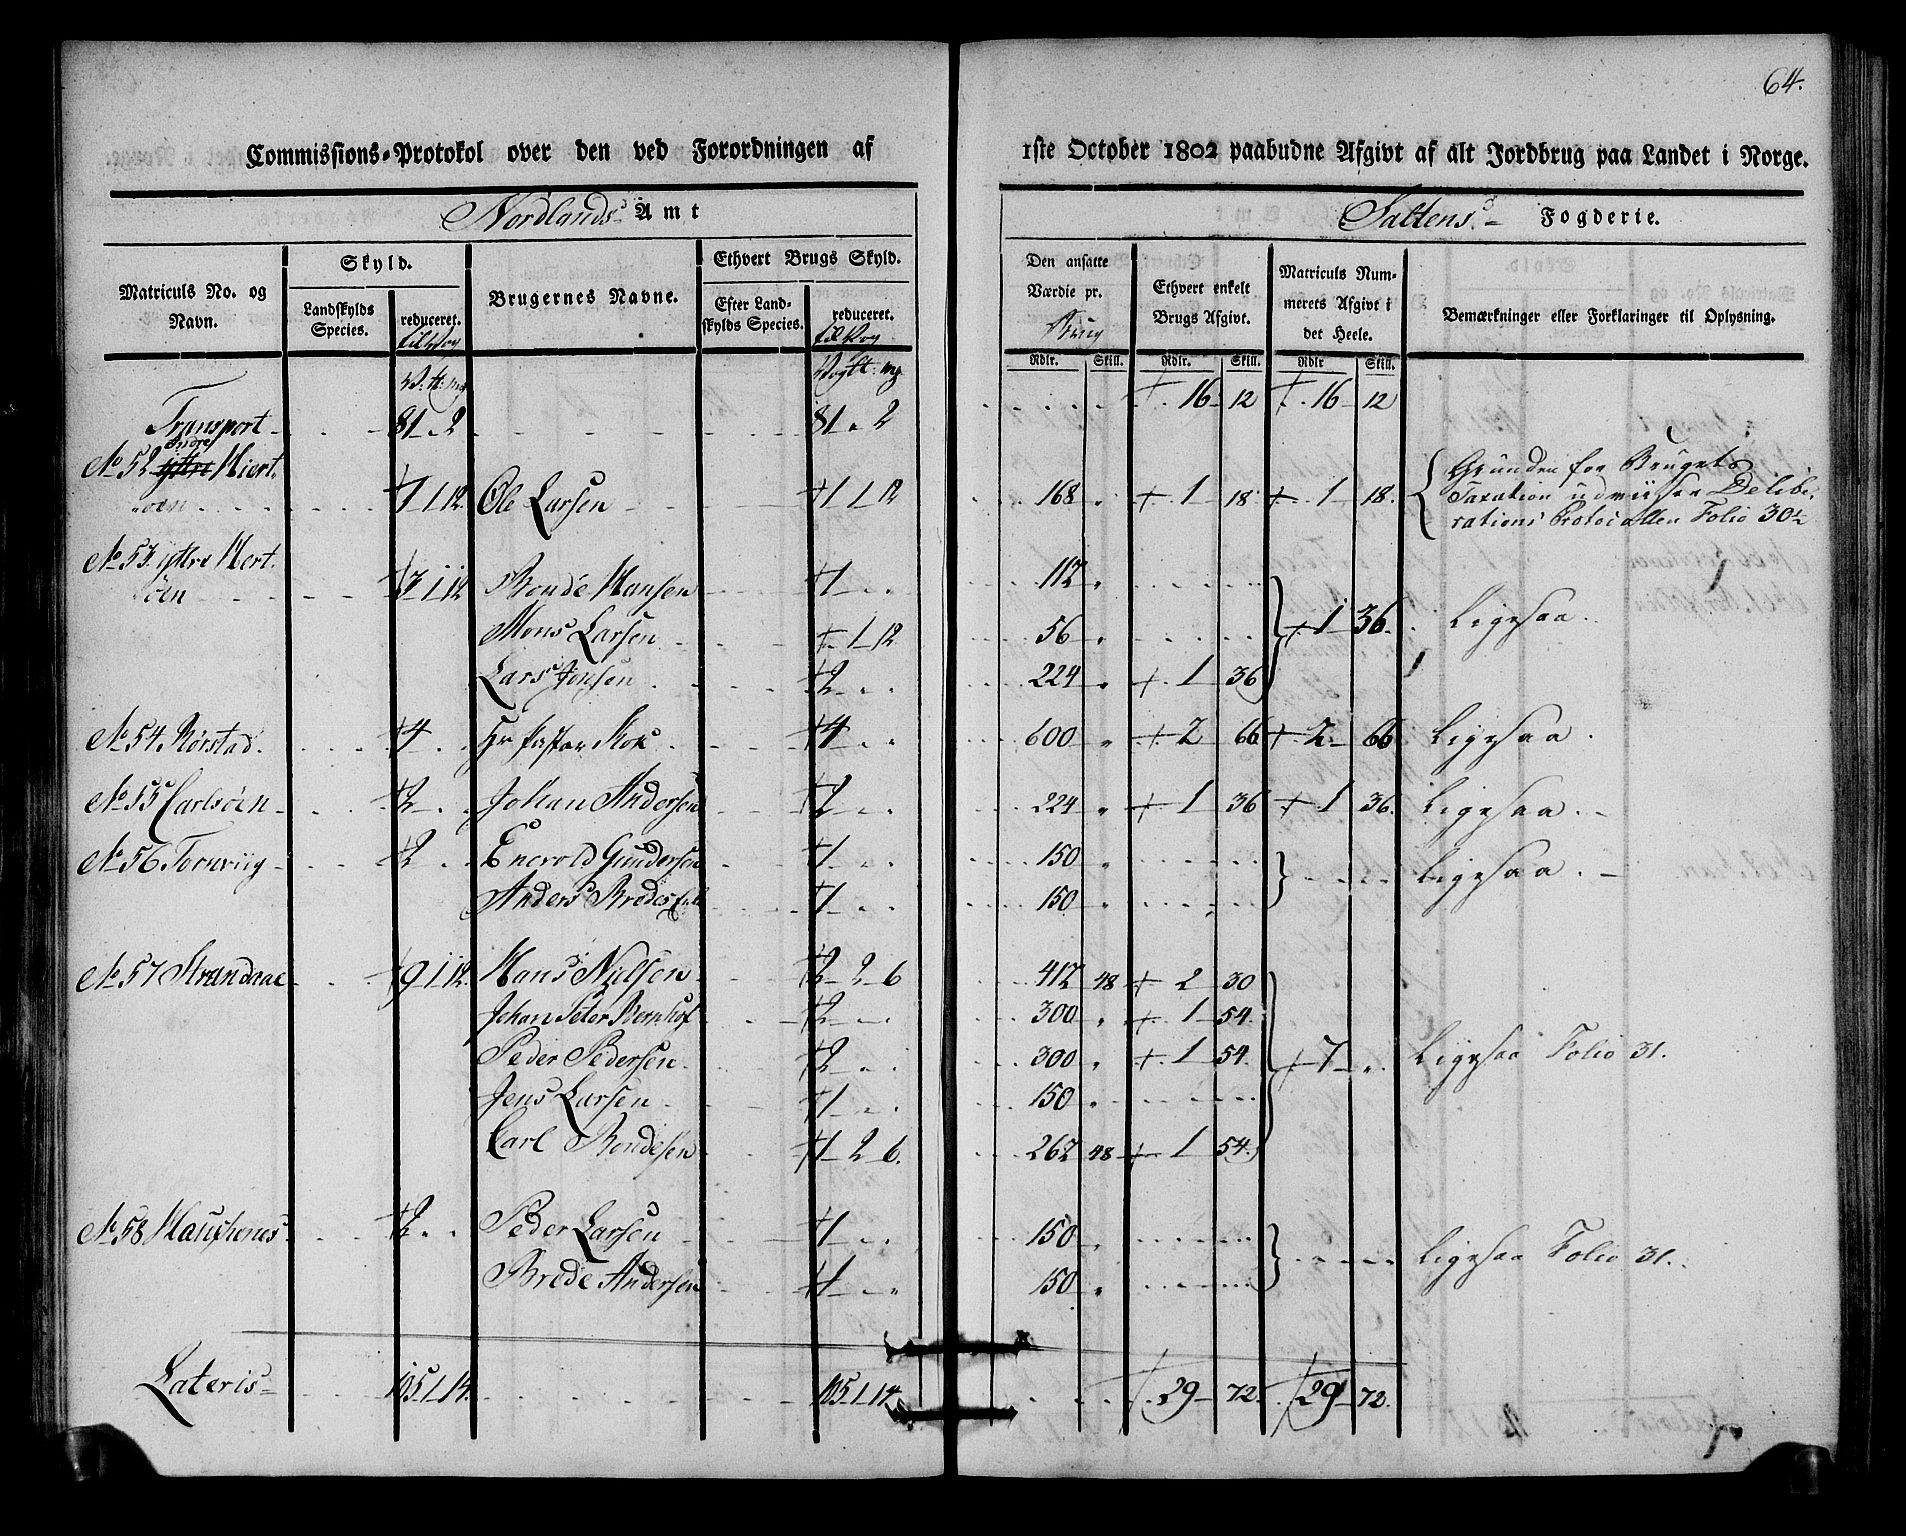 64.
Commissions-Protokol over den ved Forordningen af 1ste October 1802 paabudne Afgivt af alt Jordbrug paa Landet i Norge.
Nordlands Amt Saltens Fogderie.
Matriculs No. og Navn. Skyld. Landskylds Species. reduceret. Brugernes Navne. Ethvert Brugs Skyld. Efter Landskylds Species. reduceret. Den ansatte Værdie pr. Brug Ethvert enkelt Brugs Afgivt. Matriculs Nummerets Afgivt i det Heele. Bemærkninger eller Forklaringer til Oplysning.
Rdlr. Skill. Rdlr. Skill. Rdlr Skill.
Transport 81 - 2 81 - 2 16 12 16 12
No 52 indre Hiert-
øen 1 1 12 Ole Larsen 1 1 12 168 " 1 18 1 18. Grunden for Brugets
Taxation udviiser Delibe-
rations Protocollen Folio 30½
No 53 yttre Hert-
øen 3 1 12 Bonde Hansen 1 - - 112 "
Mons Larsen - 1 12 56 " 1 36. Ligesaa.
Lars Jonsen 2 - - 224 " 1 36
No 54 Rørstad. 4 - - Hr Pastor Kok 4 - - 600 " 2 66 2 66 Ligesaa.
No 55 Carlsøen 2 - - Johan Andersen 2 - - 224 " 1 36 1 36. Ligesaa.
No 56 Tornviig 2 - - Enevold Gundersen 1 - - 150 " Ligesaa.
Anders 1 - - 150 "
No 57 Strandaae 9 1 12. Hans Nielsen 2 2 6 412 48 2 30
Johan Peter Bernhof 2 - - 300 " 1 54.
Peder Pedersen 2 - - 300 " 1 54. 7 " Ligesaa Folio 31.
Jens Larsen 1 - - 150 "
Carl Bondesen 1 2 6. 262 48 1 54.
No 58 2 - - Peder Larsen 1 - - 150 " Ligesaa Folio 31.
Brede Andersen 1 - - 150 "
Lateris 105 1 14. 105 1 14 29 72 29 72.